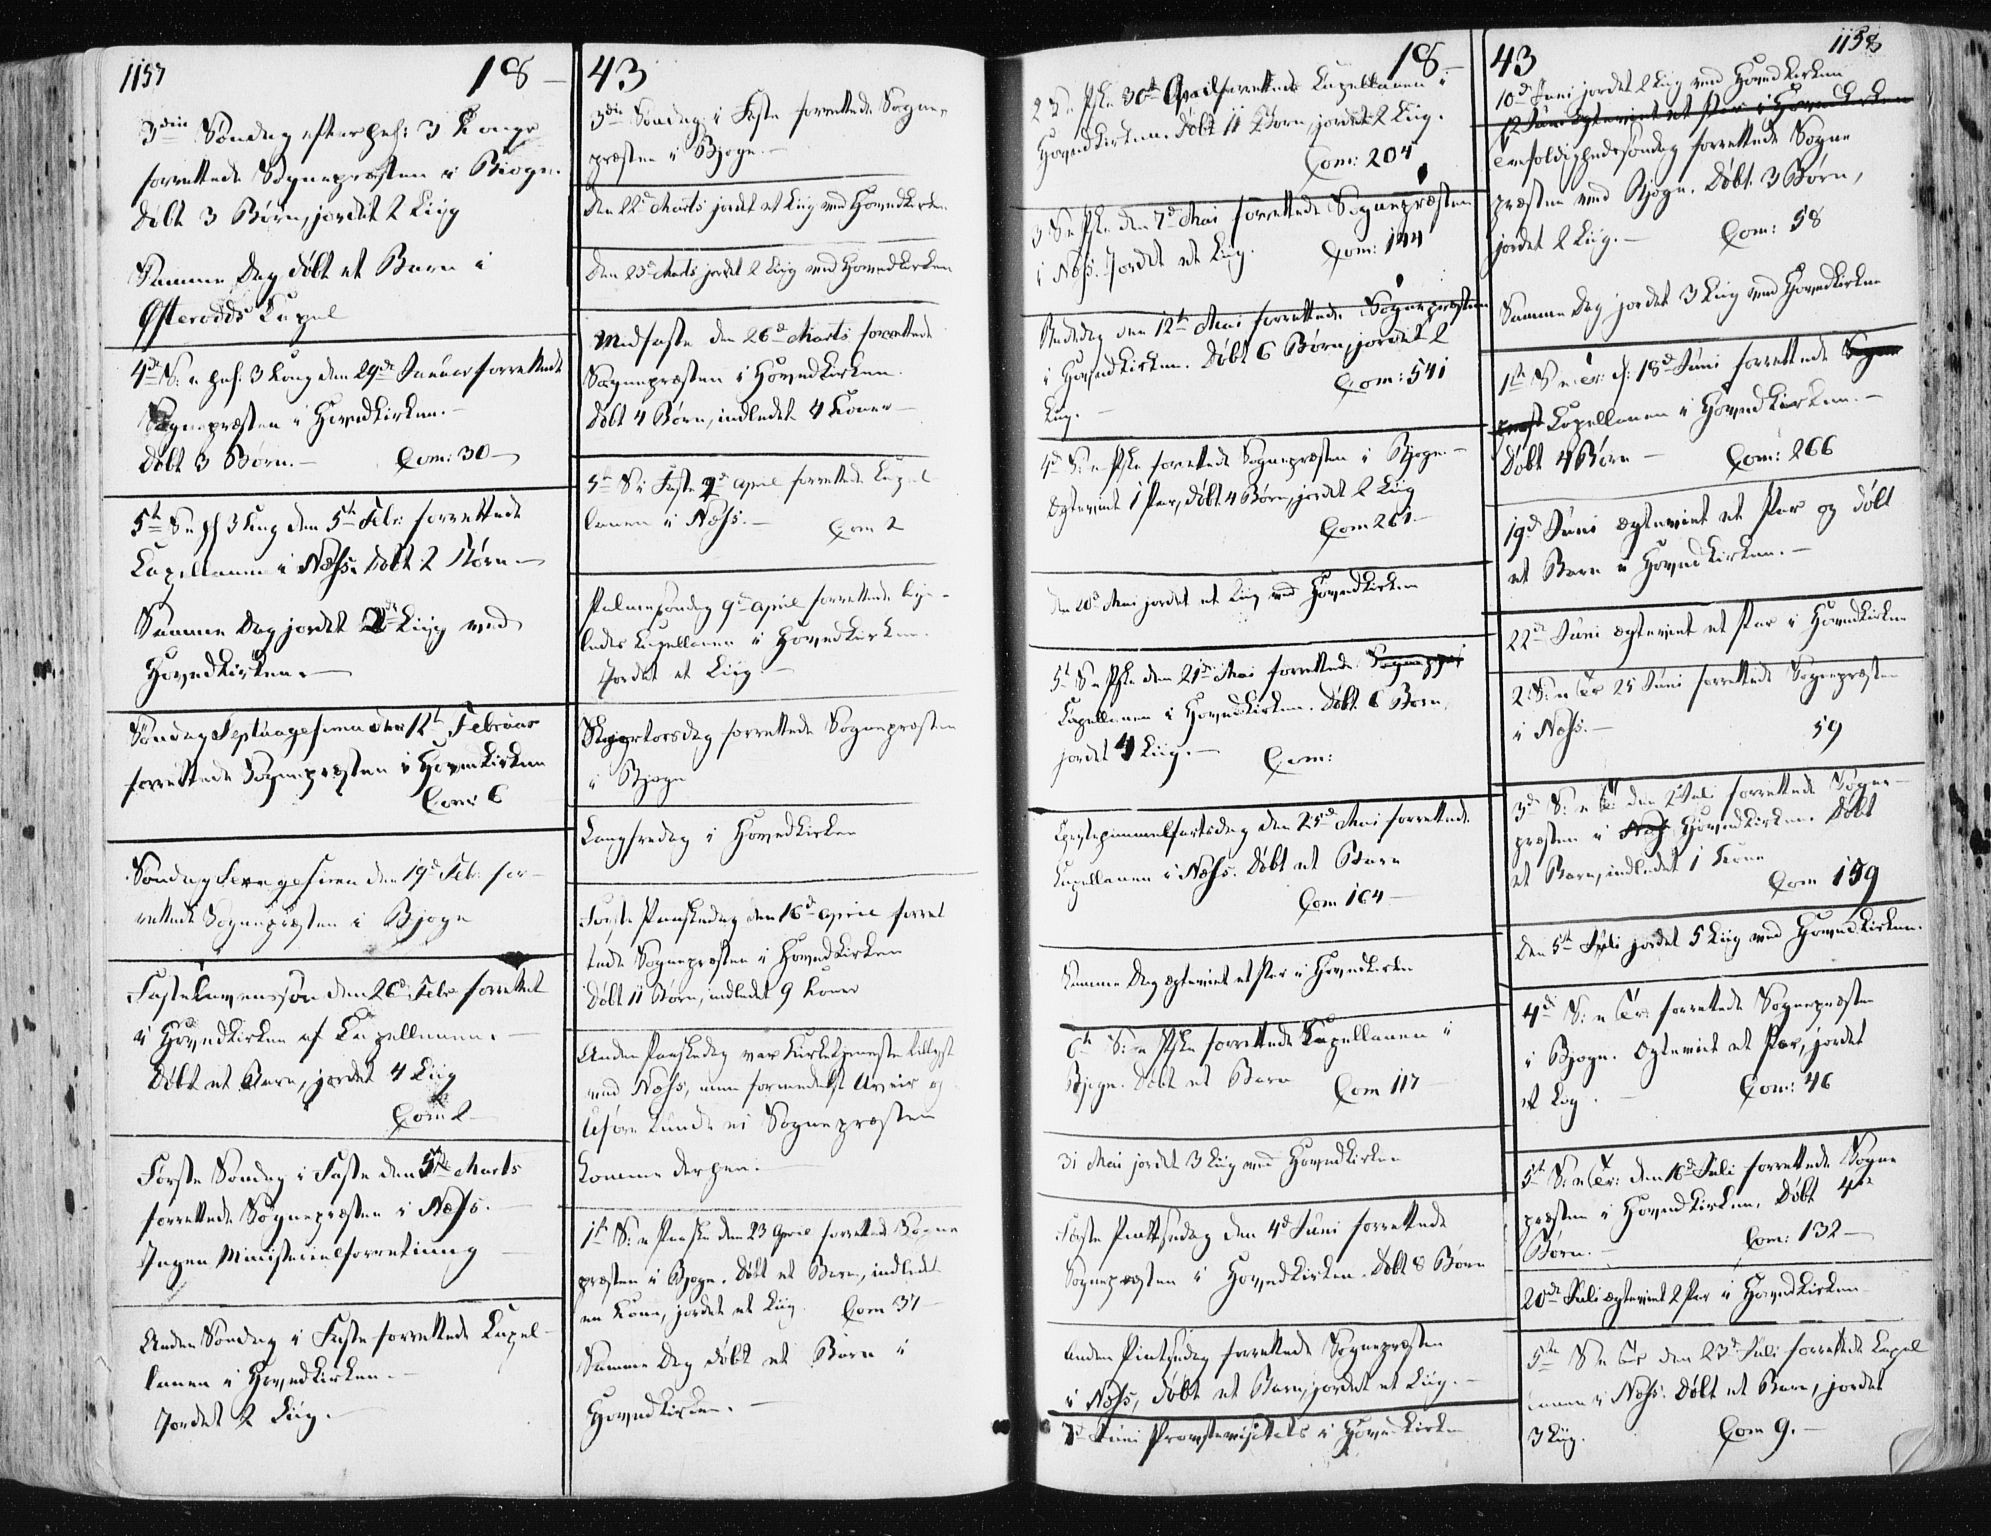 1157
18 - 43
3die Søndag efter hel: 3 Konge
forrettede Sognepræsten i Bjogn.
Døbt 3 Børn, jordet 2 Liig
Samme Dag døbt et Barn i
Østeraads Kapel
4de S: e hel. 3 Kong den 29de Januar forrettede
Sognepræsten i Hovedkirken.
Døbt 3 Børn. — Com: 30 —
5te S e hl 3 Kong den 5te Febr: forrettede
Capellanen i Næss. Døbt 2 Børn —
Samme Dag jordet 2 Liig ved
Hovedkirken. —
Søndag Septuagesima den 12te Februar
forrettede Sognepræsten i Hovedkirken
Com: 6
Søndag Sexagesima den 19de Feb. for-
rettede Sognepræsten i Bjogn
Fastelavenssøn den 26de Febr forrettet
i Hovedkirken af Capellanen. —
Døbt et Barn, jordet 4 Liig
Com 2 —
Første Søndag i Faste den 5te Marts
forrettede Sognepræsten i Næss. —
Ingen Ministerialforretning —
Anden Søndag i Faste forrettede Capel-
lanen i Hovedkirken. —
Jordet 2 Liig. —
3die Søndag i Faste forrettede Sogne-
præsten i Bjogn. —
Den 22de Marts jordet et Liig ved Hovedkirken
Den 23de Marts jordet 2 Liig ved Hovedkirken
Midfaste den 26de Marts forrettede
Sognepræsten i Hovedkirken.
Døbt 4 Børn, indledet 4 Koner —
5te S i Faste 2de April forrettede Capel
lanen i Næss. — Com 2
Palmesøndag 9de April forrettede lige-
ledes Capellanen i Hovedkirken.
Jordet et Liig. —
Skjærtorsdag forrettede Sognepræsten
i Bjogn
Langfredag i Hovedkirken
Første Paaskedag den 16de April forret
tede Sognepræsten i Hovedkirken
Døbt 11 Børn, indledet 9 Koner
Anden Paaskedag var Kirketjeneste tillyst
ved Næss, men formedelst Uveir og
Uføre kunde ei Sognepræsten
komme derhen. —
1ste S: e Paaske den 23 April forrettede Sogne
præsten i Bjogn. Døbt et Barn, indledet
en Kone, jordet et Liig. Com 37 —
Samme Dag døbt et Barn i
Hovedkirken. —
18 - 43
1158
2 S e Pske 30te April forrettede Capellanen i
Hovedkirken. Døbt 11 Børn, jordet 2 Liig.
Com: 204
3 S e Pske den 7de Mai forrettede Sognepræsten
i Næss. Jordet et Liig. Com: 144
Bededag den 12te Mai forrettede Sognepræsten
i Hovedkirken. Døbt 6 Børn, jordet 2
Liig. — Com: 541
4de S: e Pske forrettede Sognepræsten i Bjogn —
Egteviet 1 Par, døbt 4 Børn, jordet 2 Liig
Com 261. —
Den 20de Mai jordet et Liig ved Hovedkirken
5te S e Pske den 21de Mai forrettede Sognepræs
Capellanen i Hovedkirken. Døbt 6 Børn,
jordet 4 Liig. — Com:
Christihimmelfartsdag den 25de Mai forrettede
Capellanen i Næss. Døbt et Barn
Com 164 —
Samme Dag egteviet et Par i Hovedkirken
6te S: e Pske forrettede Capellanen i
Bjogn. Døbt et Barn Com 117
31 Mai jordet 3 Liig ved Hovedkirken
Første Pintsedag den 4de Juni forrettede
Sognepræsten i Hovedkirken. Døbt 8 Børn
Anden Pintsedag forrettede Sognepræsten
i Næss, døbt et Barn, jordet et Liig. —
7de Juni Provstevisitats i Hovedkirken
10de Juni jordet 2 Liig ved Hovedkirken
12 Juni egteviet et Par i Hovedkirken
Trefoldighedssøndag forrettede Sogne
præsten ved Bjogn. Døbt 3 Børn,
jordet 2 Liig. — Com: 58
Samme Dag jordet 3 Liig ved Hovedkirken
1ste S e Tr: d: 18de Juni forrettede Sogne
præst Capellanen i Hovedkirken. —
Døbt 4 Børn — Com: 266
19de Juni egteviet et Par og døbt
et Barn i Hovedkirken. —
22de Juni egteviet et Par i Hovedkirken
2 S: e Tr 25 Juni forrettede Sognepræsten
i Næss. — 59
3de S: e Tr: den 2 Juli forrettede Sogne-
præsten i Næss Hovedkirken. Døbt
et Barn, indledet 1 Kone
Com 159
Den 5te Juli jordet 5 Liig ved Hovedkirken.
4de S: e Tr: forrettede Sognepræsten
i Bjogn. Egteviet et Par, jordet
et Liig. — Com: 46
5te S: e Tr: den 16de Juli forrettede Sogne
præsten i Hovedkirken. Døbt 4re
Børn. — Com: 132 —
20de Juli egteviet 2 Par i Hovedkirken —
5te S e Tr den 23de Juli forrettede Capel
lanen i Næss. Døbt et Barn, jordet
3 Liig. Com 9. —